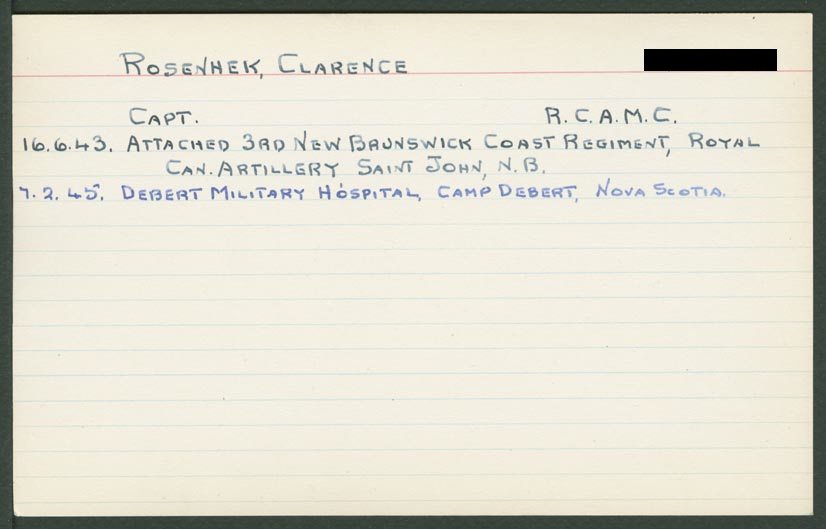 ROSENHEK, CLARENCE
CAPT. R.C.A.M.C.
16.6.43. ATTACHED 3RD NEW BRUNSWICK COAST REGIMENT, ROYAL
CAN. ARTILLERY SAINT JOHN, N.B.
7.2.45. DEBERT MILITARY HOSPITAL, CAMP DEBERT, NOVA SCOTIA.